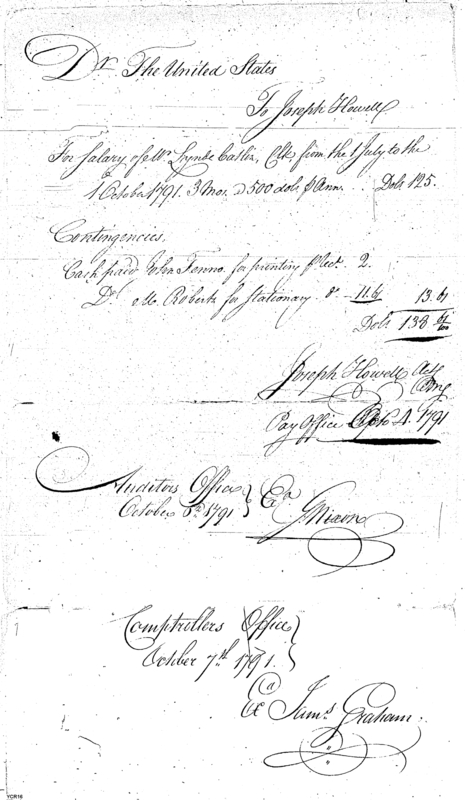 Dr. The United States
To Joseph Howell
For Salary of Mr. Lynde Catlin, Clk, from the 1 July to the
1 October 1791. 3 Mos. @ 500 dols. p Ann. . . Dols 125.
Contingencies,
Cash paid John Fenno for printing p Rect. 2.
Do. Mr. Roberts for Stationary 11.61 13.61
Dols. 138 61/100
Joseph Howell Actg
Pay Office 4. 1791
Auditors Office }
October 1791 } Exd
Nixon
Comptrollers Office }
October 7th 1791. }
Exd Jams. Graham.
YCR16